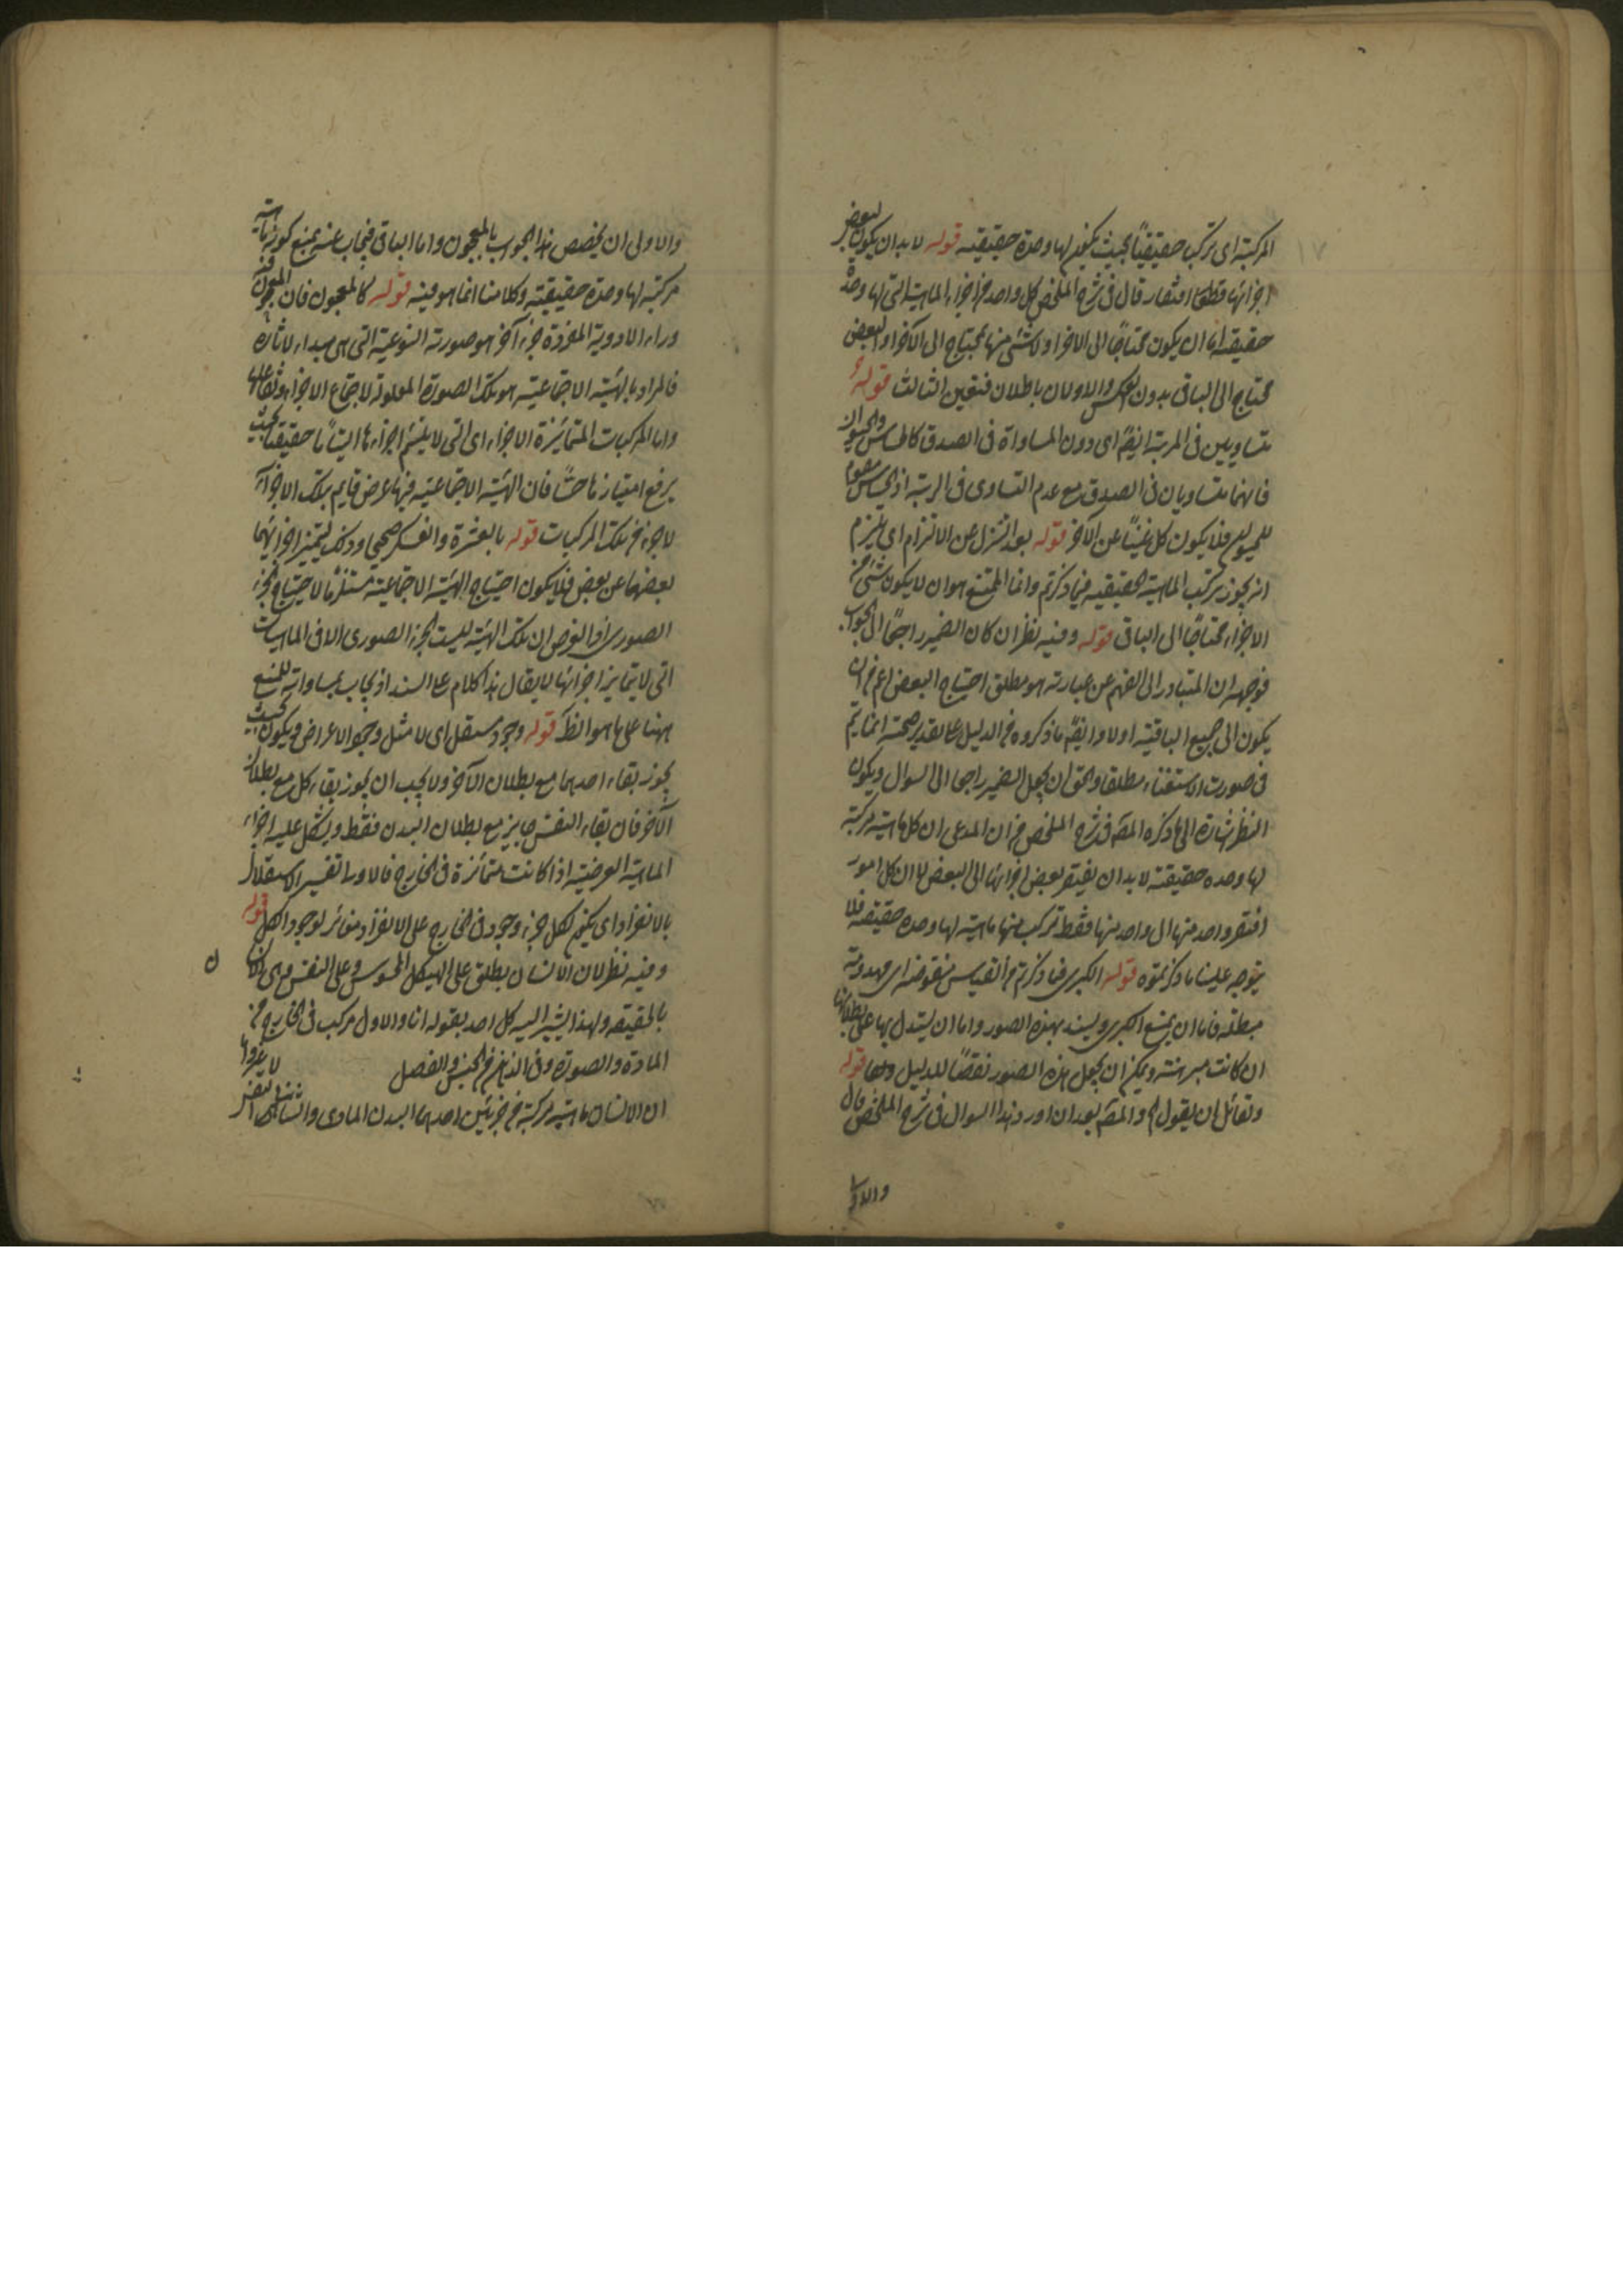 ١٧
المركبة اى تركب حقيقيا بحيث يكون لها وحدة حقيقية قوله لا بد ان يكون لبعض
اجزائها قطعا افتقار قال فى شرح الملخص كل واحد من اجزاء الماهية التى لها وحدة
حقيقة اما ان يكون محتاجا الى الاخر او لا شئ منها بمحتاج الى الآخر او البعض
محتاج الى الباقى بدون العكس والاولان باطلان فتعين الثالث قوله
متساويين فى المرتبة ايضا اى دون المساواة فى الصدق كالحساس والحيوان
فانهما متساويان فى الصدق مع عدم التساوى فى الرتبة اذ الحساس مقوم
للحيوان فلا يكون كل غنيا عن الآخر قوله بعد التنزل عن الالتزام اى يلتزم
انه يجوز تركب الماهية الحقيقية فيما ذكرتم وانما الممتنع هو ان لا يكون شئ من
الاجزاء محتاجا الى الباقى قوله وفيه نظر ان كان الضمير راجعا الى الجواب
فوجهه ان المتبادر الى الفهم عن عبارته هو مطلق احتياج البعض اعم من ان
يكون الى جميع الباقية اولا وايضا ما ذكروه من الدليل على تقدير صحته انما يتم
فى صورت الاستغناء مطلقا والحق ان يجعل الضمير راجعا الى السوال ويكون
النظر اشارة الى ما ذكره المصه فى شرح الملخص من ان المدعى ان كل ماهية مركبة
لها وحده حقيقية لا بد ان يفتقر بعض اجزائها الى البعض لا ان كل امور
افتقر واحد منها الى واحد منها فقط تركب منها ماهية لها وحده حقيقة فلا
يتوجه علينا ما ذكرتموه قوله الكبرى فيما ذكرتم من القياس منقوضة اى مهدومة
مبطلة فاما ان يمنع الكبرى ويسند بهذه الصور واما ان يستدل بها على بطلانها
ان كانت مبرهنة ويمكن ان يجعل هذه الصور نقضا للدليل قوله
ولقائل ان يقول والمصه بعد ان اورد هذا السوال فى شرح الملخص قال
والاولى
والاولى ان يخصص هذا الجواب بالمعجون واما الباقى فيجاب عنه بمنع كونه ماهية
مركبة لها وحدة حقيقية وكلامنا انما هو فيه قوله كالمعجون فان المعجون فيه
وراء الادوية المفردة جزء آخر هو صورته النوعية التى هى مبداء لاثاره
فالمراد بالهيئة الاجتماعية هو تلك الصورة المعلولة لاجتماع الاجزاء وتفاعلها
واما المركبات المتمائزة الاجزاء اى التى لا يلتئم اجزاءها التياما حقيقيا بحيث
يرفع امتيازها حسا فان الهيئة الاجتماعية فيها عرض قايم بتلك الاجزاء
لا جزء من تلك المركبات قوله بالعشرة والعسكر صحيحا وذلك لتميز اجزائهما
بعضها عن بعض فلا يكون احتياج الهيئة الاجتماعية مستلزما لاحتياج الجزء
الصورى اذ الفرض ان تلك الهيئة ليست الجزء الصورى الا فى الماهيات
التى لا يتمايز اجزائها لا يقال هذا كلام على السند اذ يجاب بمساواته للمنع
ههنا على ما هو الظ قوله وجود مستقل اى لا مثل وجود الاعراض ويكون بحيث
يجوز بقاء احدهما مع بطلان الآخر ولا يجب ان يجوز بقاء كل مع بطلان
الآخر فان بقاء النفس جايز مع بطلان البدن فقط ويشكل عليه اجزاء
الماهية العرضية اذا كانت متمائزة فى الخارج فالاولى تفسير الاستقلال
بالانفراد اى يكون لكل جزء وجود فى الخارج على الانفراد مغائر لوجود الكل قوله
وفيه نظر لان الانسان يطلق على الهيكل المحسوس وعلى النفس وهى الانسان
بالحقيقة ولهذا يشير اليه كل احد بقوله انا والاول مركب فى الخارج من
المادة والصورة وفى الذهن من الجنس والفصل
ان الانسان ماهية مركبة من جزئين احدهما البدن المادى والثانى النفس